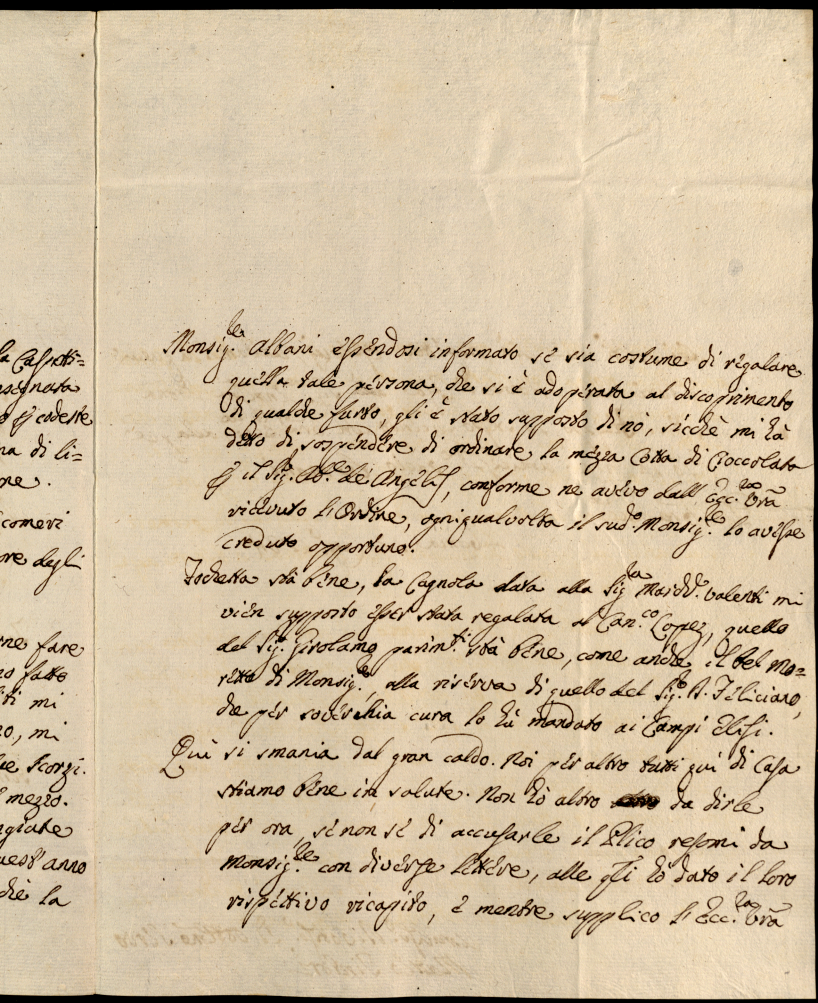 la Cassetti=
nsegnata
o p codeste
na di li=
ne.
comeri
ore degli
rne fare
no fatto
iti mi
no, mi
ue scorzi.
mezzo.
ngiate
uest'anno
chè la
Monsig.re Albani essendosi informato se sia costume di regalare
quella tale persona, che si è adoperata al discoprimento
di qualche furto, gli è stato supposto di nò, sicchè mi hà
detto di sospendere di ordinare la mezza Cotta di Cioccolata
p il Sig.r Ab.e de Angelis, conforme ne avevo dall' Ecc.za Vrã
ricevuto l'Ordine, ogniqualvolta il sud.o Monsig.re lo avesse
creduto opportuno.
Fochetta stà bene, la Cagnola data alla Sig.ra March.a Valenti mi
vien supposto esser stata regalata al Can.co Lopez, quello
del Sig.r Girolamo parim.ti stà bene, come anche il bel mo=
retto di Monsig.re, alla riserva di quello del Sig.r D. Feliciano,
che per soverchia cura lo hà mandato ai Campi Elisi.
Quì si smania dal gran caldo. Noi per altro tutti quì di Casa
stiamo bene in salute. Non hò altro da dirle
per ora, se non se di accusarle il Plico resomi da
Monsig.re con diverse lettere, alle q̃li hò dato il loro
rispettivo ricapito, e mentre supplico l'Ecc.za Vrã